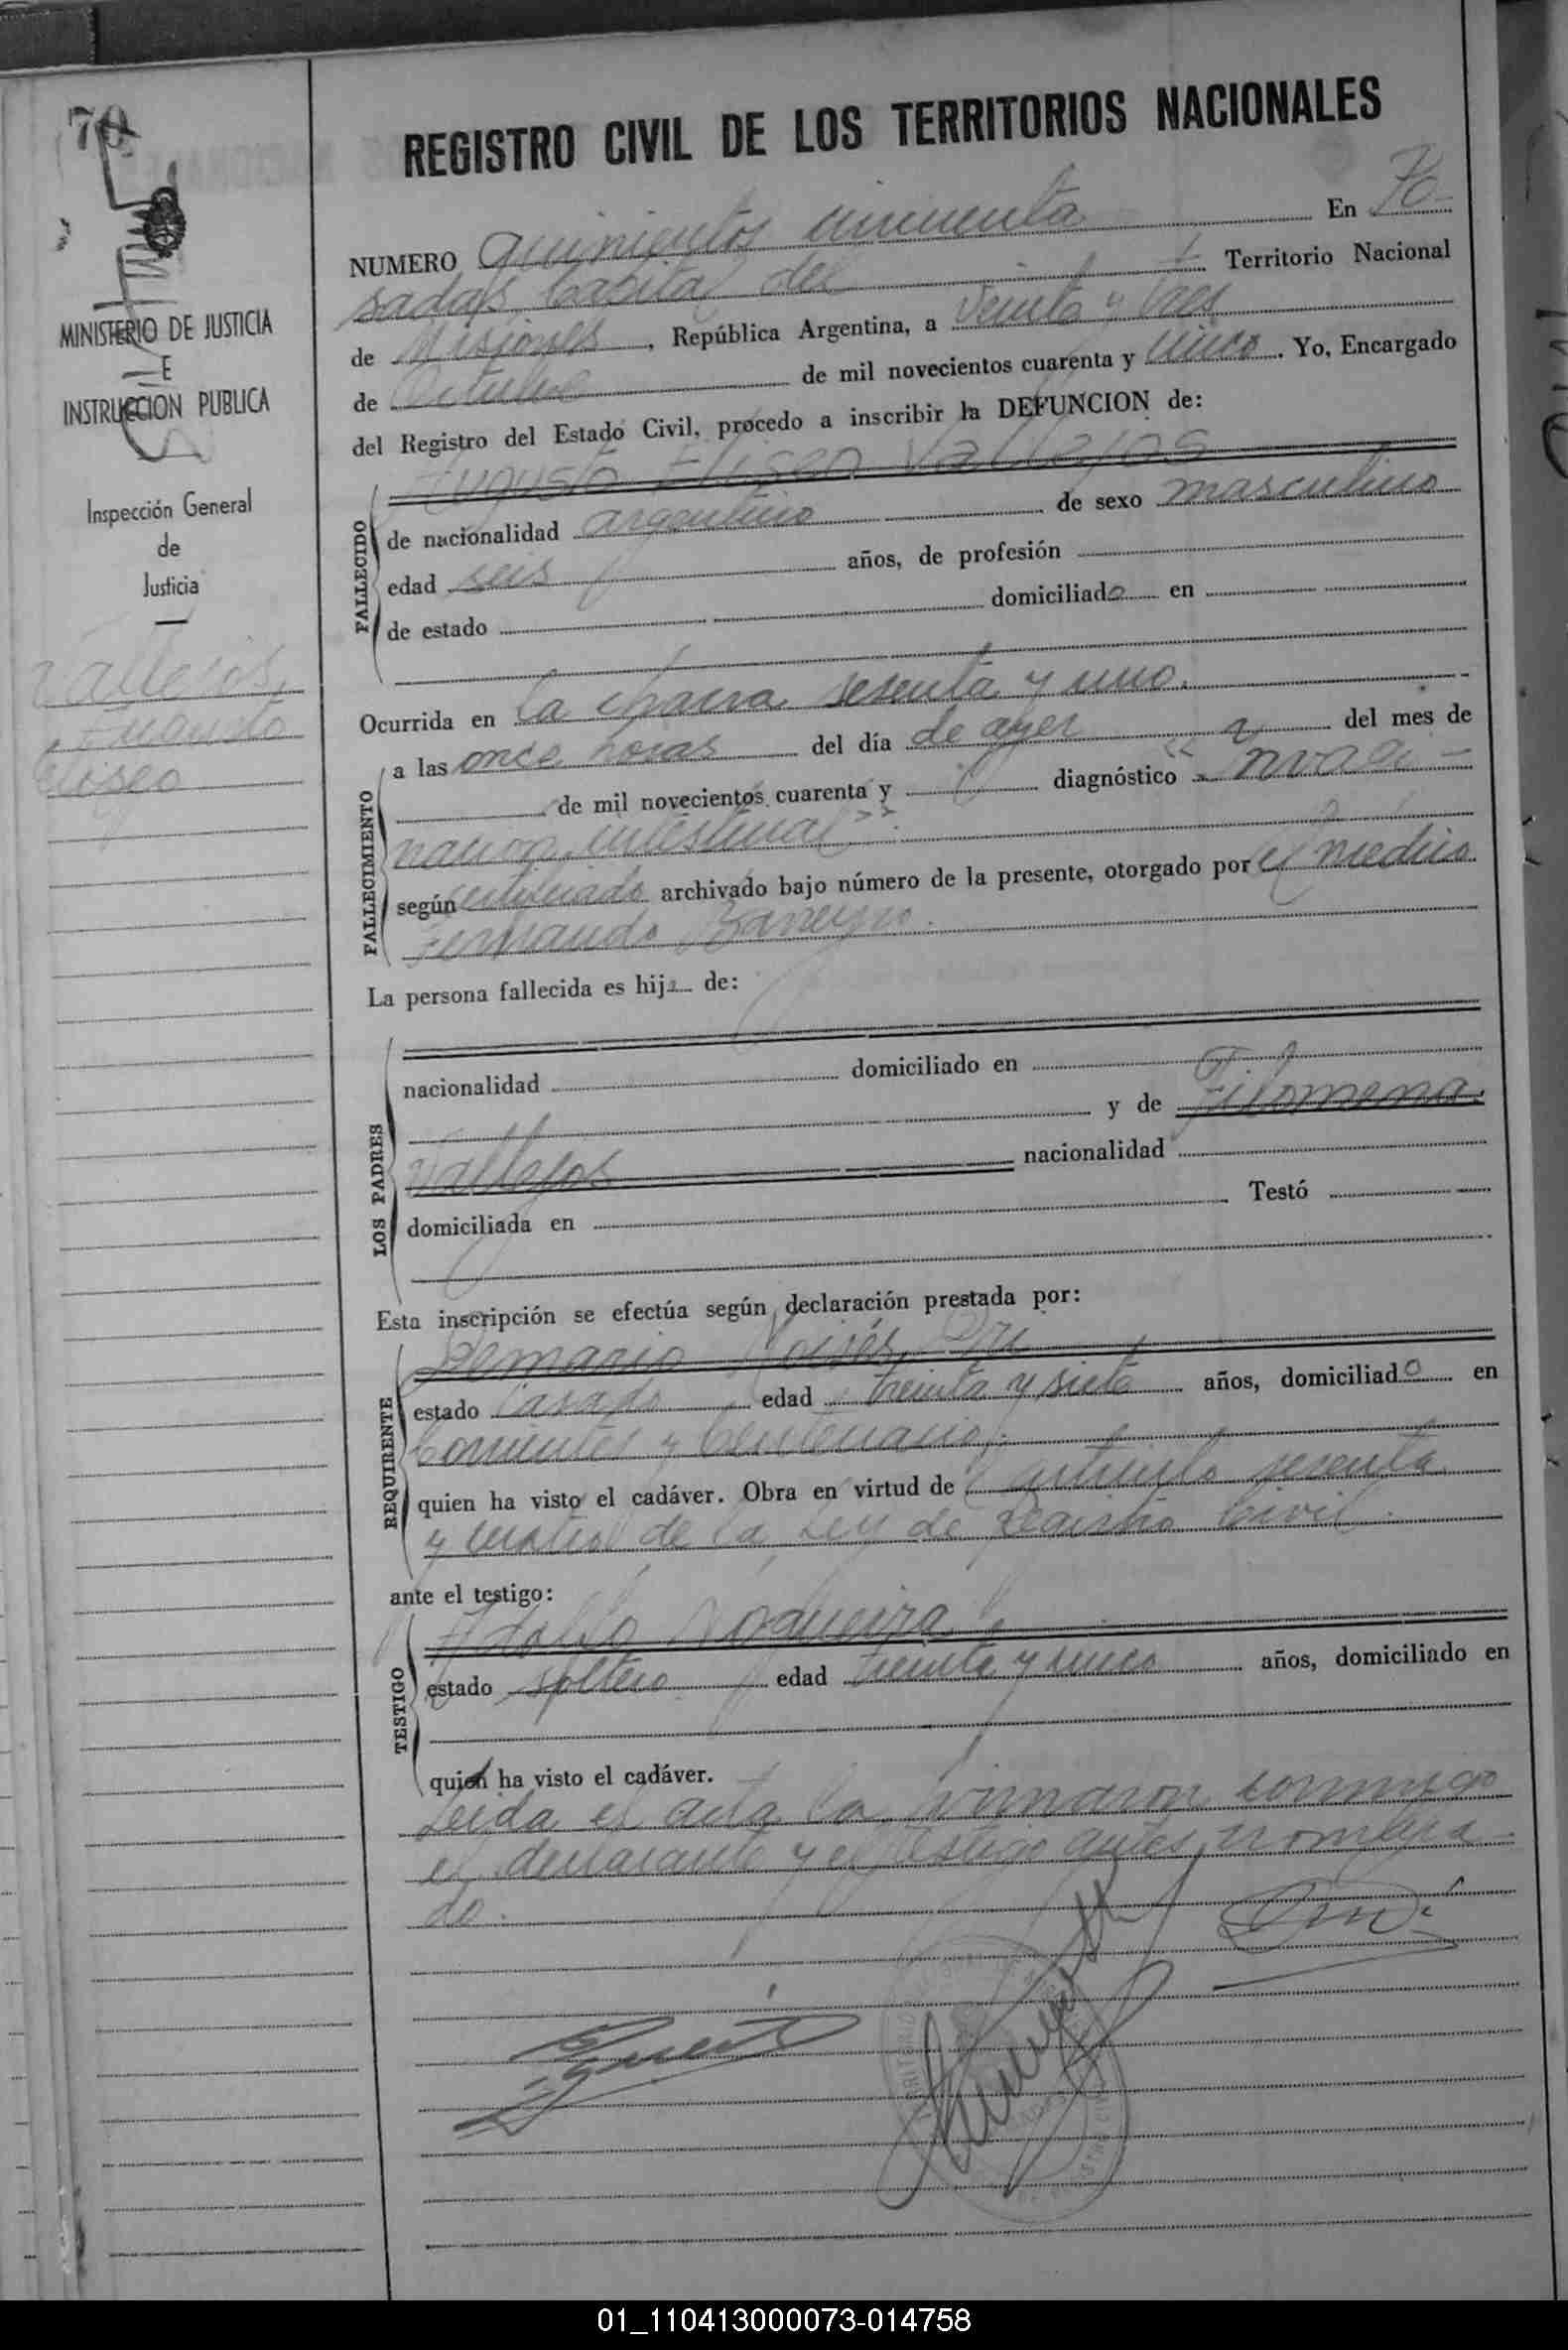 70
MINISTERIO DE JUSTICIA
E
INSTRUCCION PUBLICA
Inspección General
de
Justicia
Vallejos,
Augusto
Eliseo
REGISTRO CIVIL DE LOS TERRITORIOS NACIONALES
NUMERO Quinientos cincuenta En Po-
sadas Capital del Territorio Nacional
de Misiones, República Argentina, a veinte y tres
de Octubre de mil novecientos cuarenta y cinco. Yo, Encargado
del Registro del Estado Civil, procedo a inscribir la DEFUNCION de:
Augusto Eliseo Vallejos
FALLECIDO
de nacionalidad argentino de sexo masculino
edad seis años, de profesión
de estado domiciliado en
Ocurrida en la chacra sesenta y uno.
FALLECIMIENTO
a las once horas del día de ayer a del mes de
de mil novecientos cuarenta y diagnóstico " invagi-
nacion intestinal".
según certificado archivado bajo número de la presente, otorgado por el medico
Fernando
La persona fallecida es hijo de:
LOS PADRES
nacionalidad domiciliado en
y de Filomena
Vallejos nacionalidad
domiciliada en Testó
Esta inscripción se efectúa según declaración prestada por:
REQUIRENTE
Moisés
estado casado edad treinta y siete años, domiciliado en
Corrientes y Centenario,
quien ha visto el cadáver. Obra en virtud de articulo sesenta
y cuatro de la Ley de Registro Civil.
ante el testigo:
TESTIGO
Adolfo Nogueira
estado soltero edad treinta y cinco años, domiciliado en
quien ha visto el cadáver.
Leida el acta la firmaron conmigo
el declarante y el testigo antes nombra-
do.
01_110413000073-014758